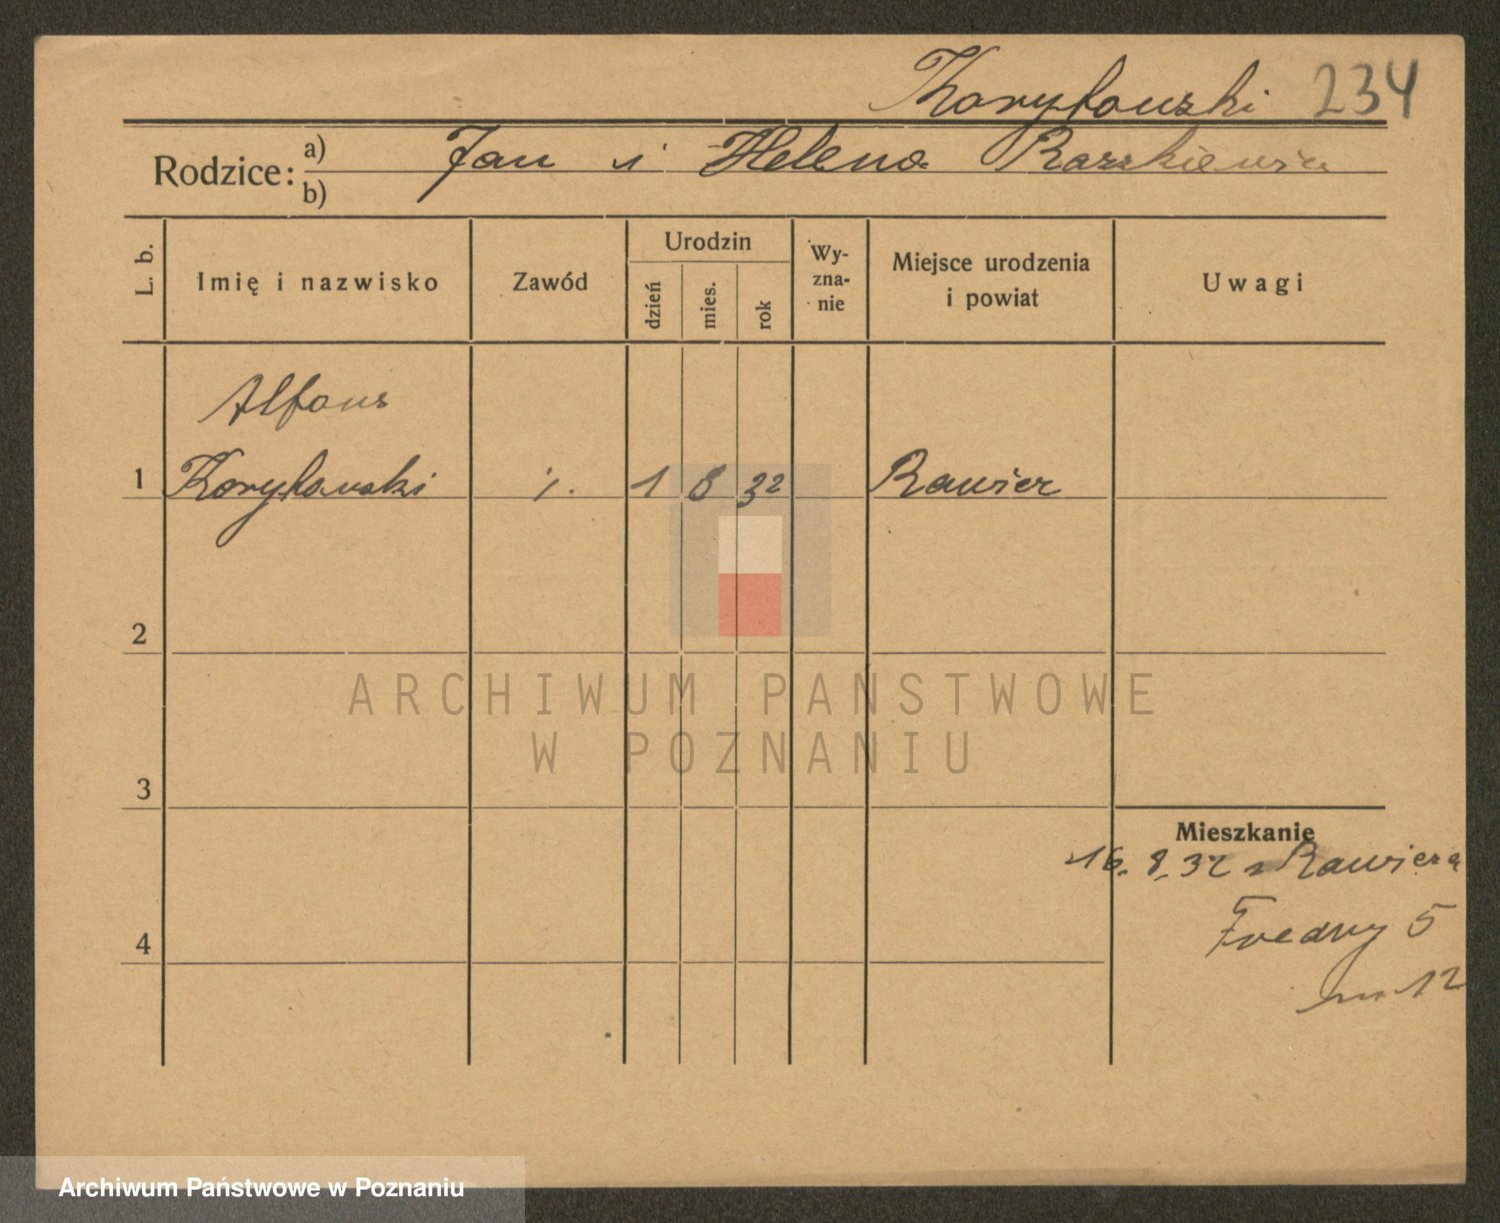 Koryłowski 234
Rodzice: a) Jan i Helena Raszkiewicz
b)
L. b. Imię i nazwisko Zawód Urodzin dzień mies. rok Wy-zna-nie Miejsce urodzenia i powiat Uwagi
Alfons
1 Koryłowski 1 8 32 Rawicz
2
ARCHIWUM PAŃSTWOWE
W POZNANIU
3
Mieszkanie
16. 8. 32 z Rawicza
Fredry 5
4
m 12
Archiwum Państwowe w Poznaniu